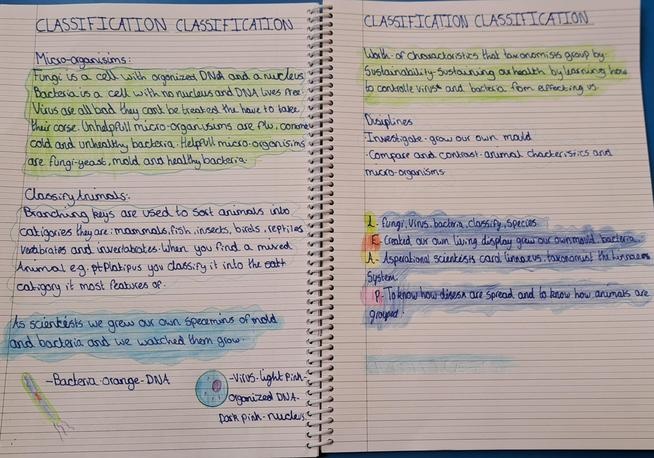 CLASSIFICATION CLASSIFICATION
Micro-organisims:
Fungi is a cell with organized DNA and a nucleus
Bacteria is a cell with no nucleus and DNA lives free.
Virus are all bad they cant be treated the have to take
their corse. Unhelpfull micro-organisisms are flu, common
cold and unhealthy bacteria. Helpfull micro-organisims
are fungi-yeast, mold and healthy bacteria.
Classify Animals:
Branching keys are used to sort animals into
catigories they are: mammals, fish, insects, birds, reptiles
vertabrates and invertabrates. When you find a mixed
Animal e.g. Platipus you classify it into the
catigory it most features of.
As scientests we grew our own specemins of mold
and bacteria and we watched them grow.
-Bacteria-orange-DNA
-Virus-light pink-
organized DNA-
Dark pink-nucleus.
CLASSIFICATION CLASSIFICATION
of characteristics that taxonomists group by
Sustainability-Sustaining our health by learning how
to controlle virus and bacteria from effecting us.
Disiplines
-Investigate-grow our own mold
-Compare and contrast-animal charcteristics and
micro-organisms.
L- Fungi, Virus, bacteria, classify, species
E- Created our own living display grew our own mould, bacteria.
A- Asperational scientists carol linnaeus, taxonomist the linnaeus
System.
P- To know how diseases are spread and to know how animals are
grouped.